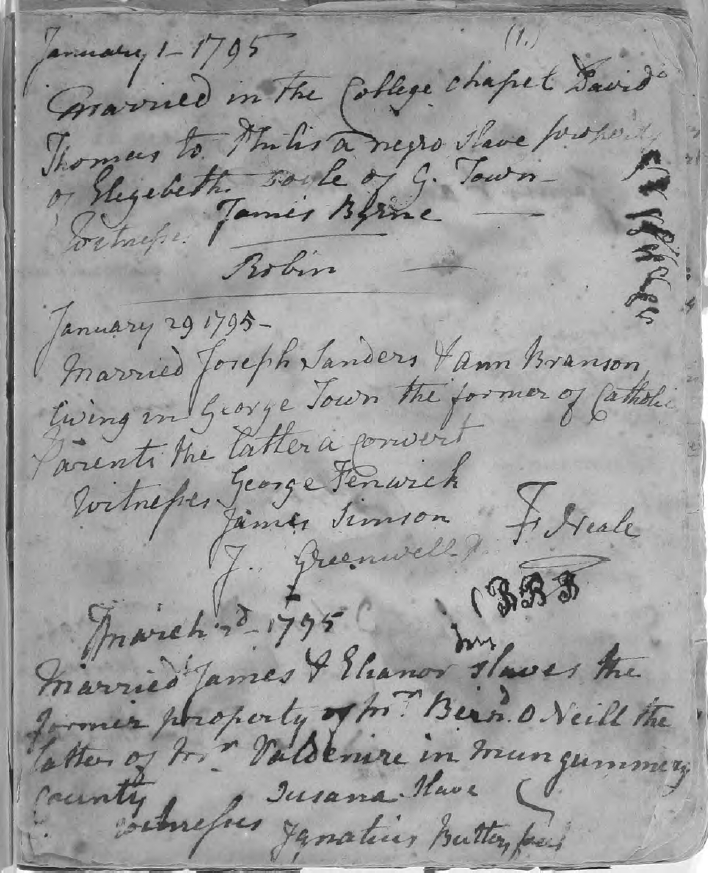 (1.)
January 1 - 1795
Married in the College chapel David
Thomas to Philis a negro slave property
of Elizebeth of G. Town -
Witness James Byrne
Robin
January 29 1795 -
Married Joseph Sanders & ann Branson,
living in George Town the former of Catholic
Parents the latter a convert
Witnesses George Fenwick
James Simson
J. Greenwell
Fs Neale
BBB
March 2d - 1795
Married James & Elianor slaves the
former property of Mr. Bernd. O Neill the
latter of Mr. Valdenire in Mungummery
County Susana Slave
witnesses Ignatius Butler